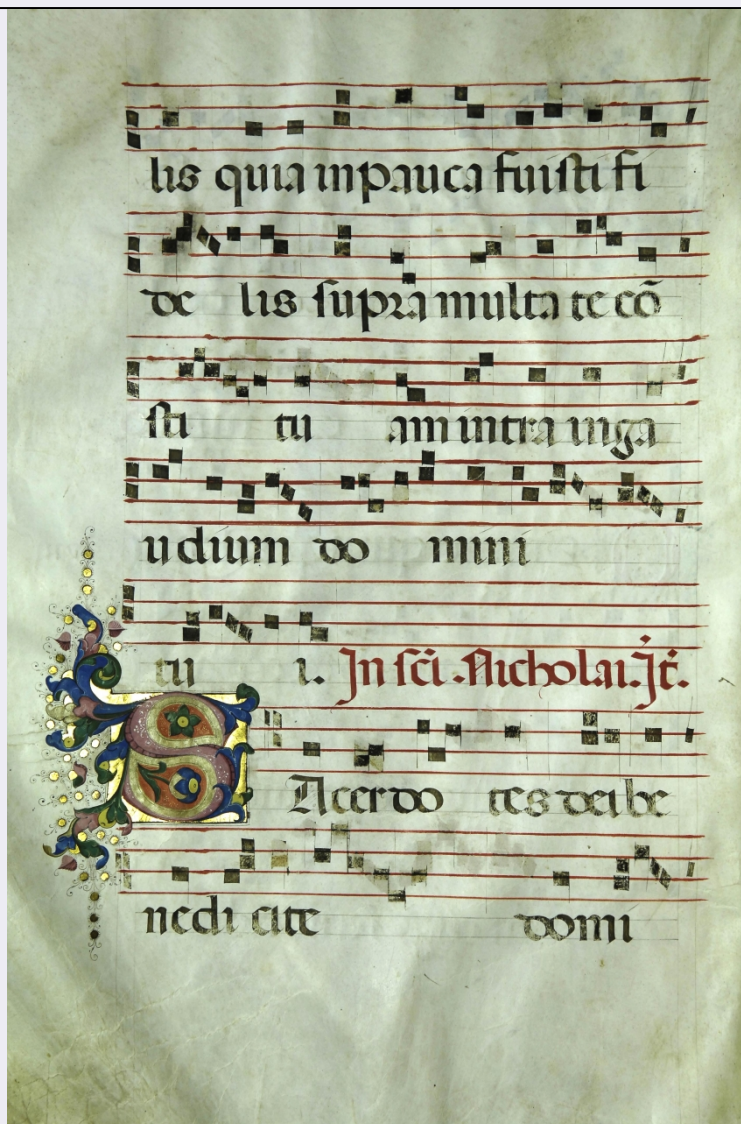 lis quia in pauca fuisti fi
de lis supra multa te cō
sti tu am intra in ga
udium do mini
tu i. In sc̄i. Nicholai. It̄.
SAcerdo tes dei be
nedi cite domi